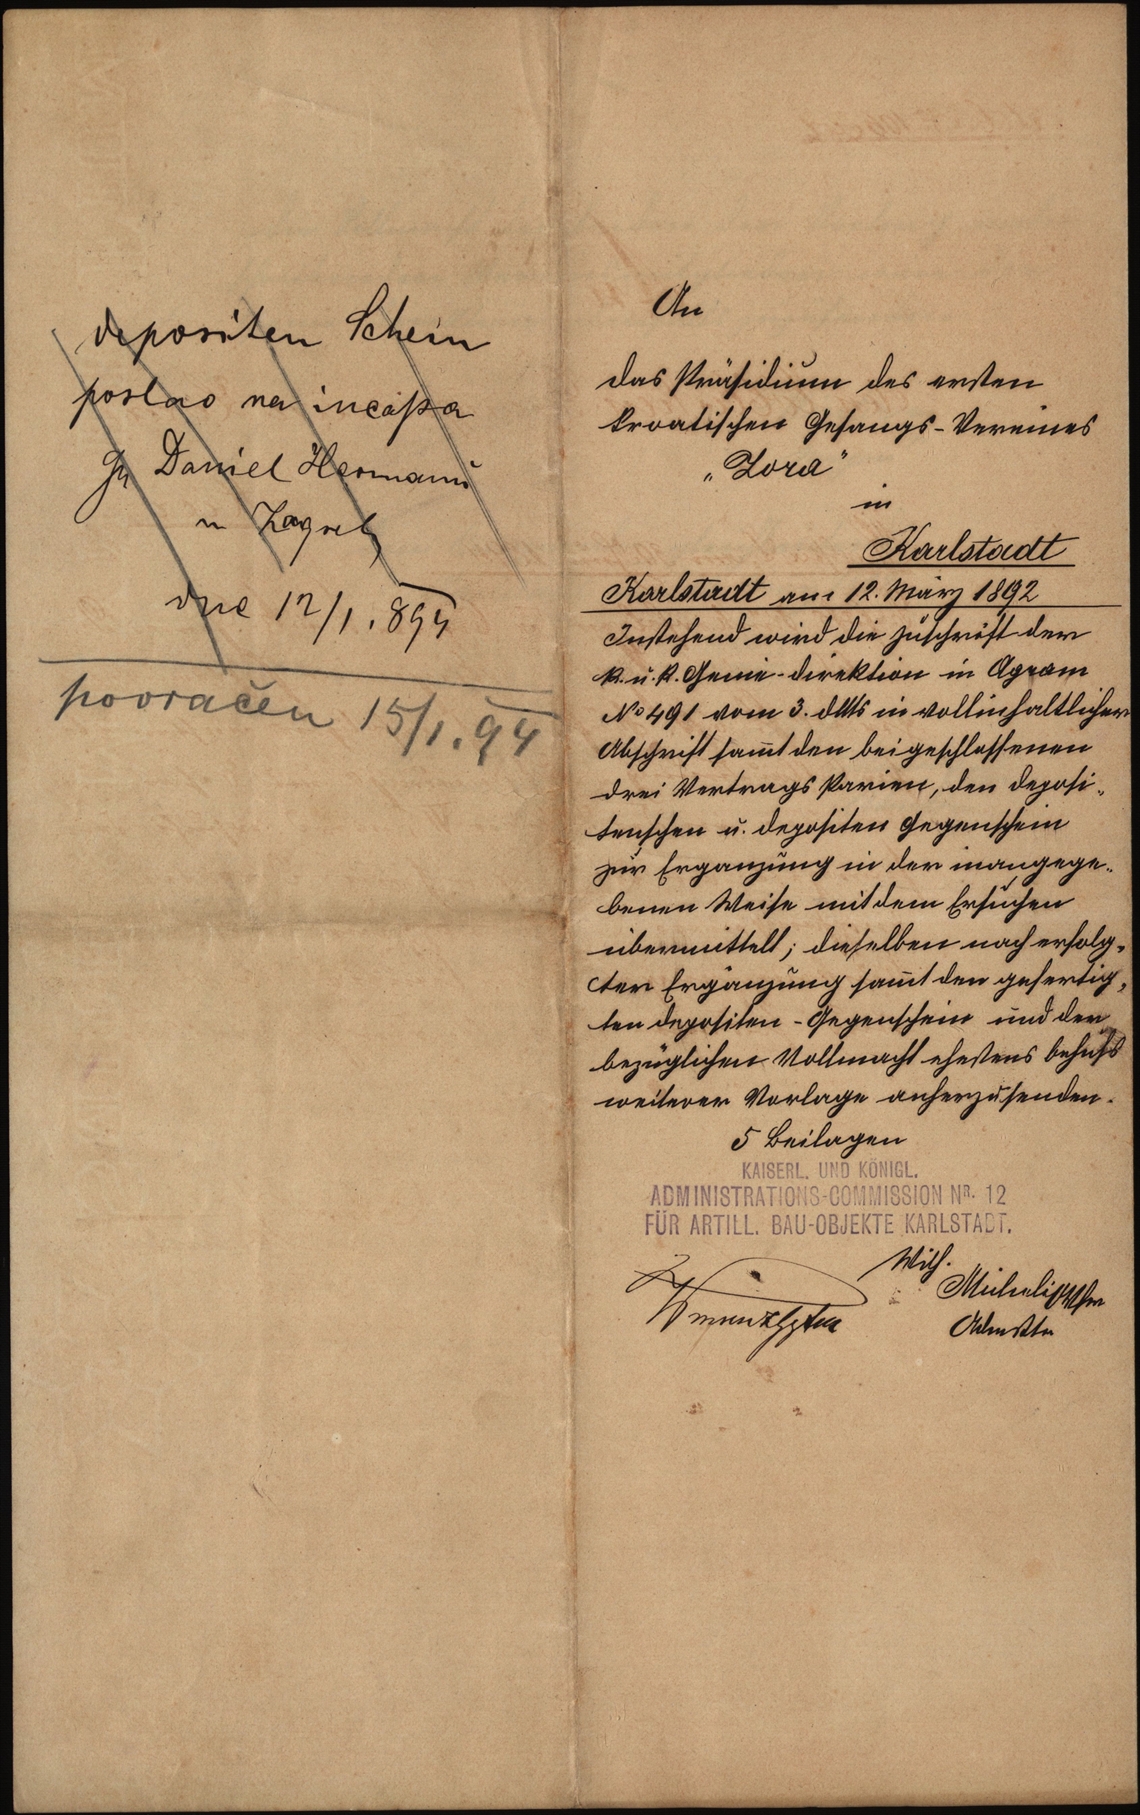 depositen Schein
poslao na incaßa
Daniel Hermann
u Zagreb
dne 12/1. 894
povraćen 15/1. 94
An
das Präsidium des ersten
kroatischen Gesangs-Vereines
„Zora"
in
Karlstadt
Karlstadt am 12. März 1892
Instehend wird die Zuschrift der
k. u. k. Genie-direktion in Agram
No 491 vom 3. dMts in vollinhaltlicher
Abschrift sam̄t den beigeschlossenen
drei Vertrags Parien, den deposi-
tenschen u. depositen Gegenschein
zur Ergänzung in der inangege-
benen Weise mit dem Ersuchen
übermittelt; dieselben nach erfolg-
ter Ergänzung sam̄t den gefertig-
ten depositen-Gegenschein und der
bezüglichen Vollmacht ehestens behufs
weiterer Vorlage anherzusenden.
5 Beilagen
KAISERL. UND KÖNIGL.
ADMINISTRATIONS-COMMISSION NR. 12
FÜR ARTILL. BAU-OBJEKTE KARLSTADT.
Wilh.